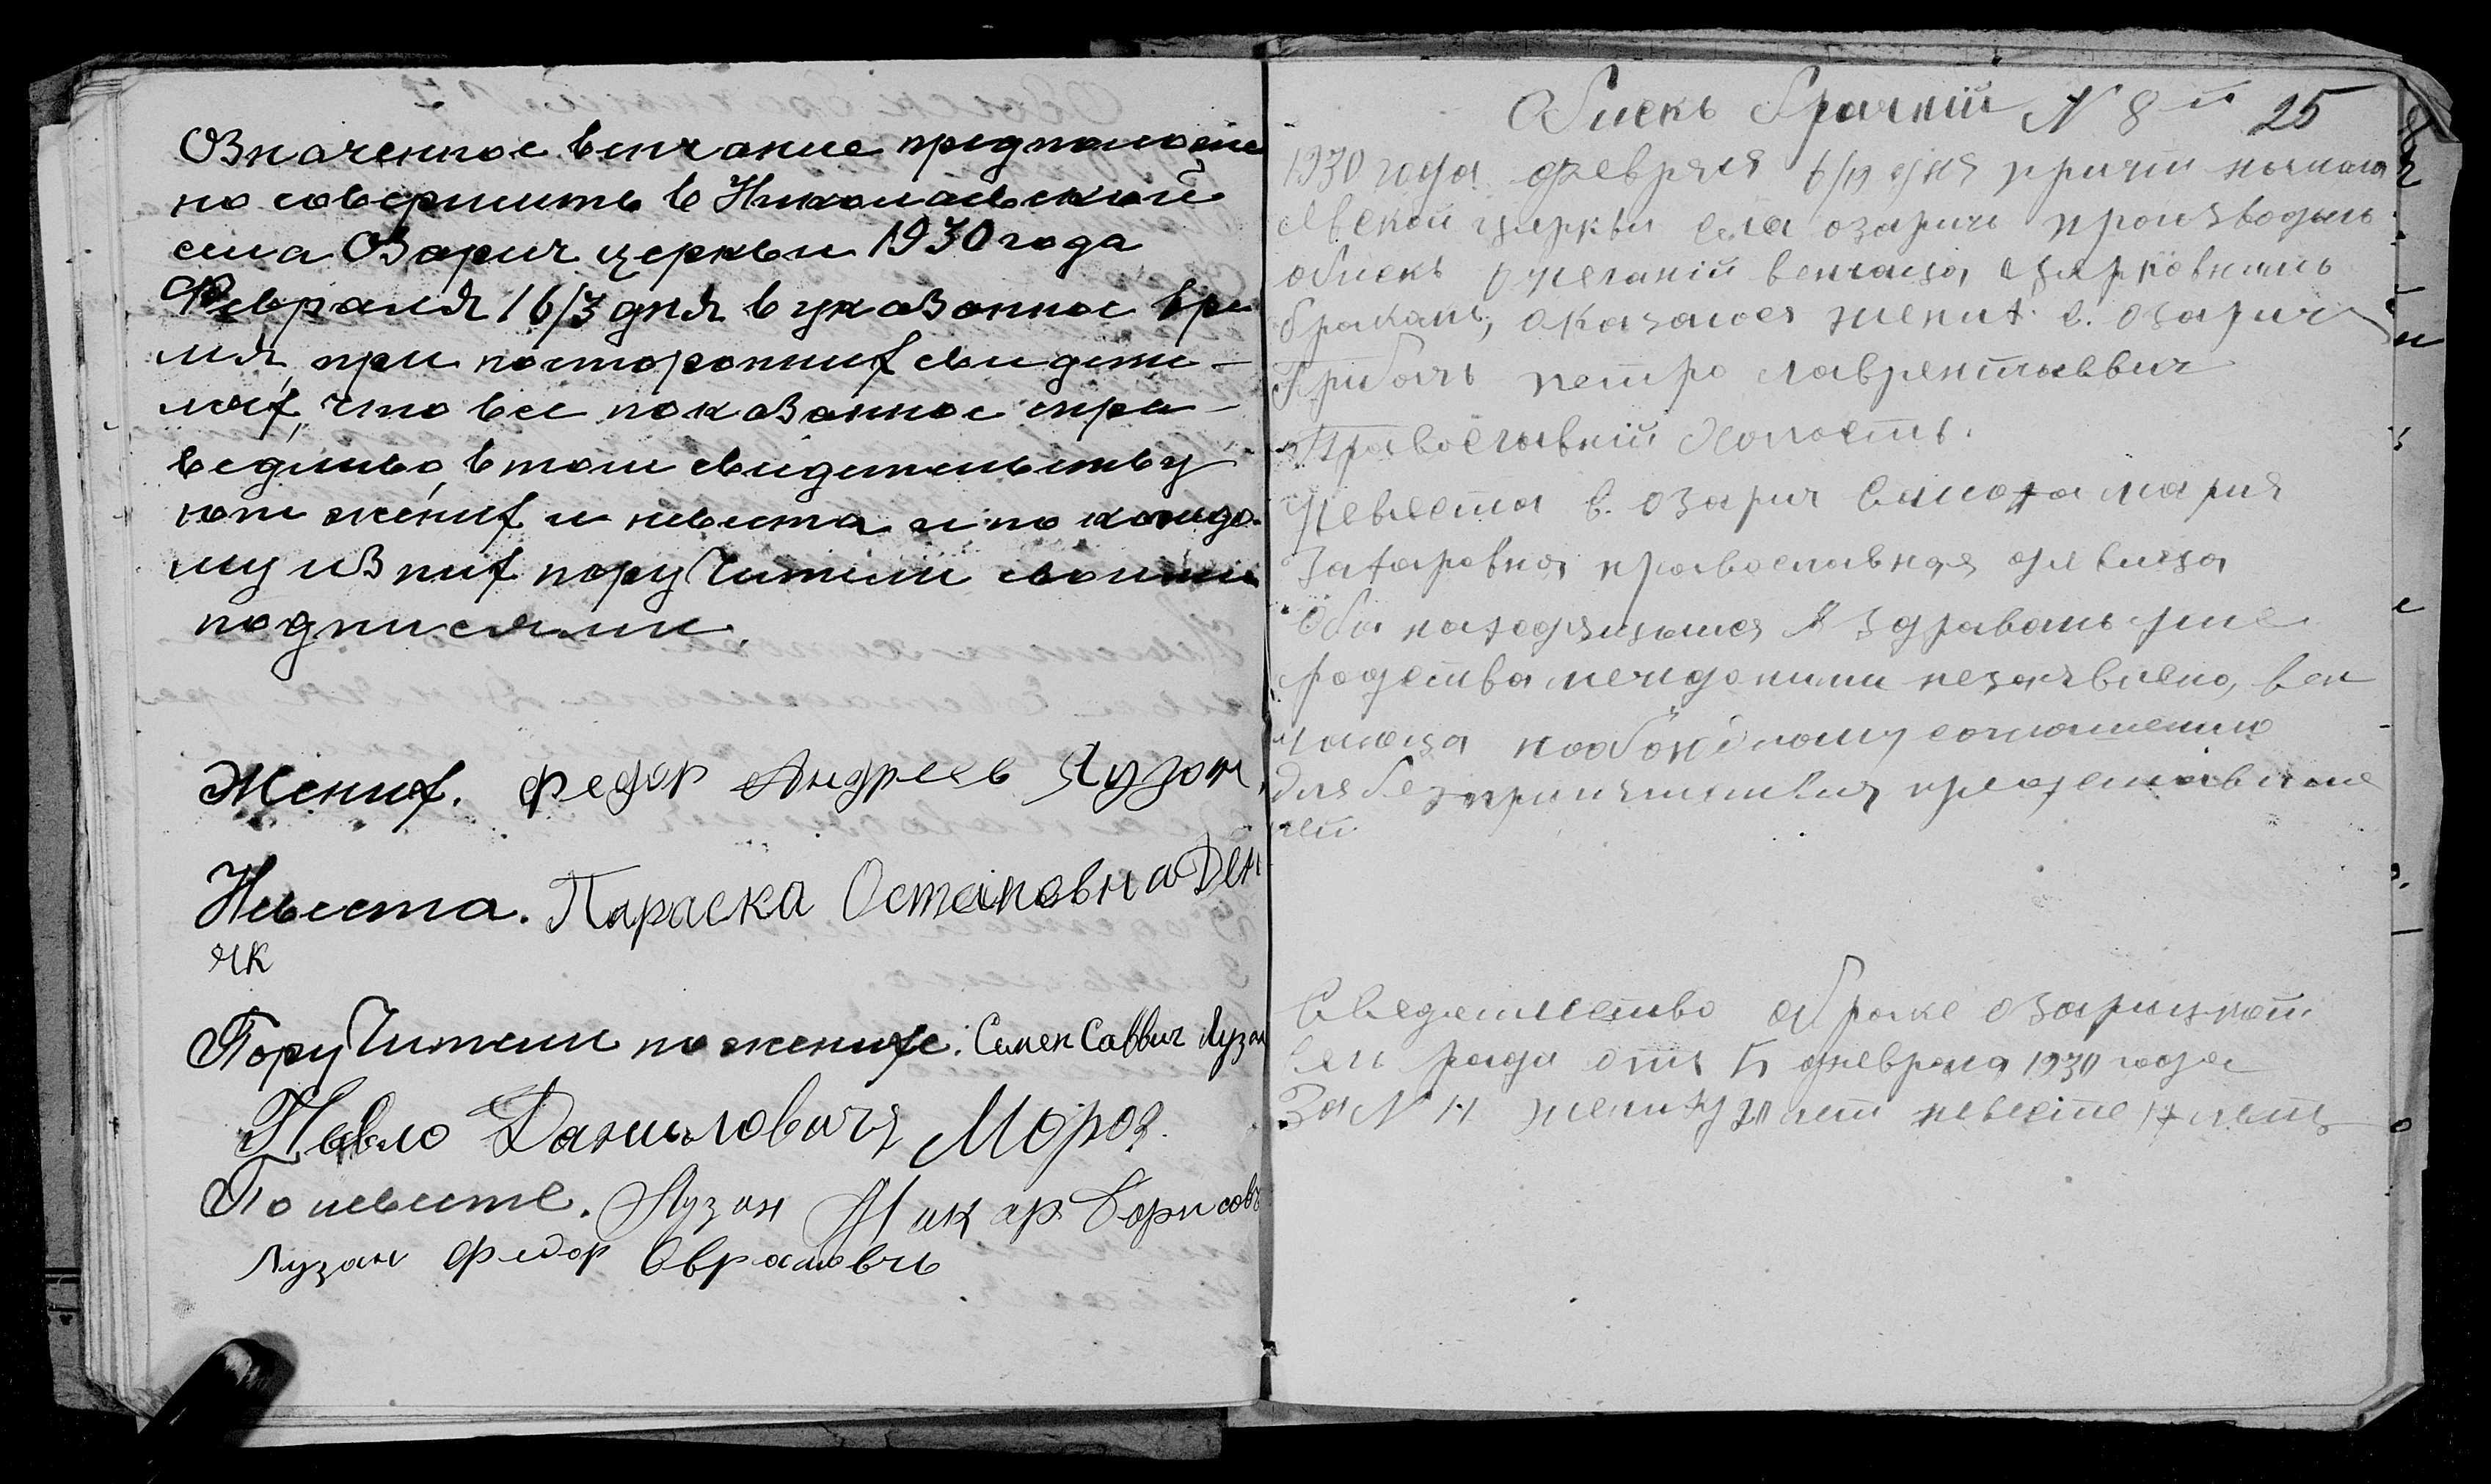 Означенное венчание предположе
но совершить в Николаевской
села Озарич церкви 1930 года
Февраля 16/3 дня в указанное вре
мя, при посторонних свидете-
лях, что все показанное спра-
ведливо, в том свидетельству
ют жених и невеста и по каждо
му из них поручители своими
подписями.
Жених. Федор Андреев Лузан
Невеста. Параска Остаповна Ден
як
Поручители по женихе: Семен Саввич Лузан
Павло Данилович Мороз.
По невесте. Лузан Макар Борисов
Лузан Федор Аврамовч
Обиск брачний N 8й 25
1930 года февряля дня причт никола
евской церкви села озарич производил
обиск о желаний венчаца церковним
браком, оказалося жених с. озарич
Грибач петро лаврентиевич
Православний холость.
Невеста с. озарич мария
Захаровна православная девица
Оба находящимися в здравом уме
родства между ними незаявлено, вен
чаюца по обоюдному соглашению
для безприпятствия
ней
Сведетелство о браке озарицкой
сель ради от 5 феврала 1930 года
За N 11 жениху лет невесте 17 летъ